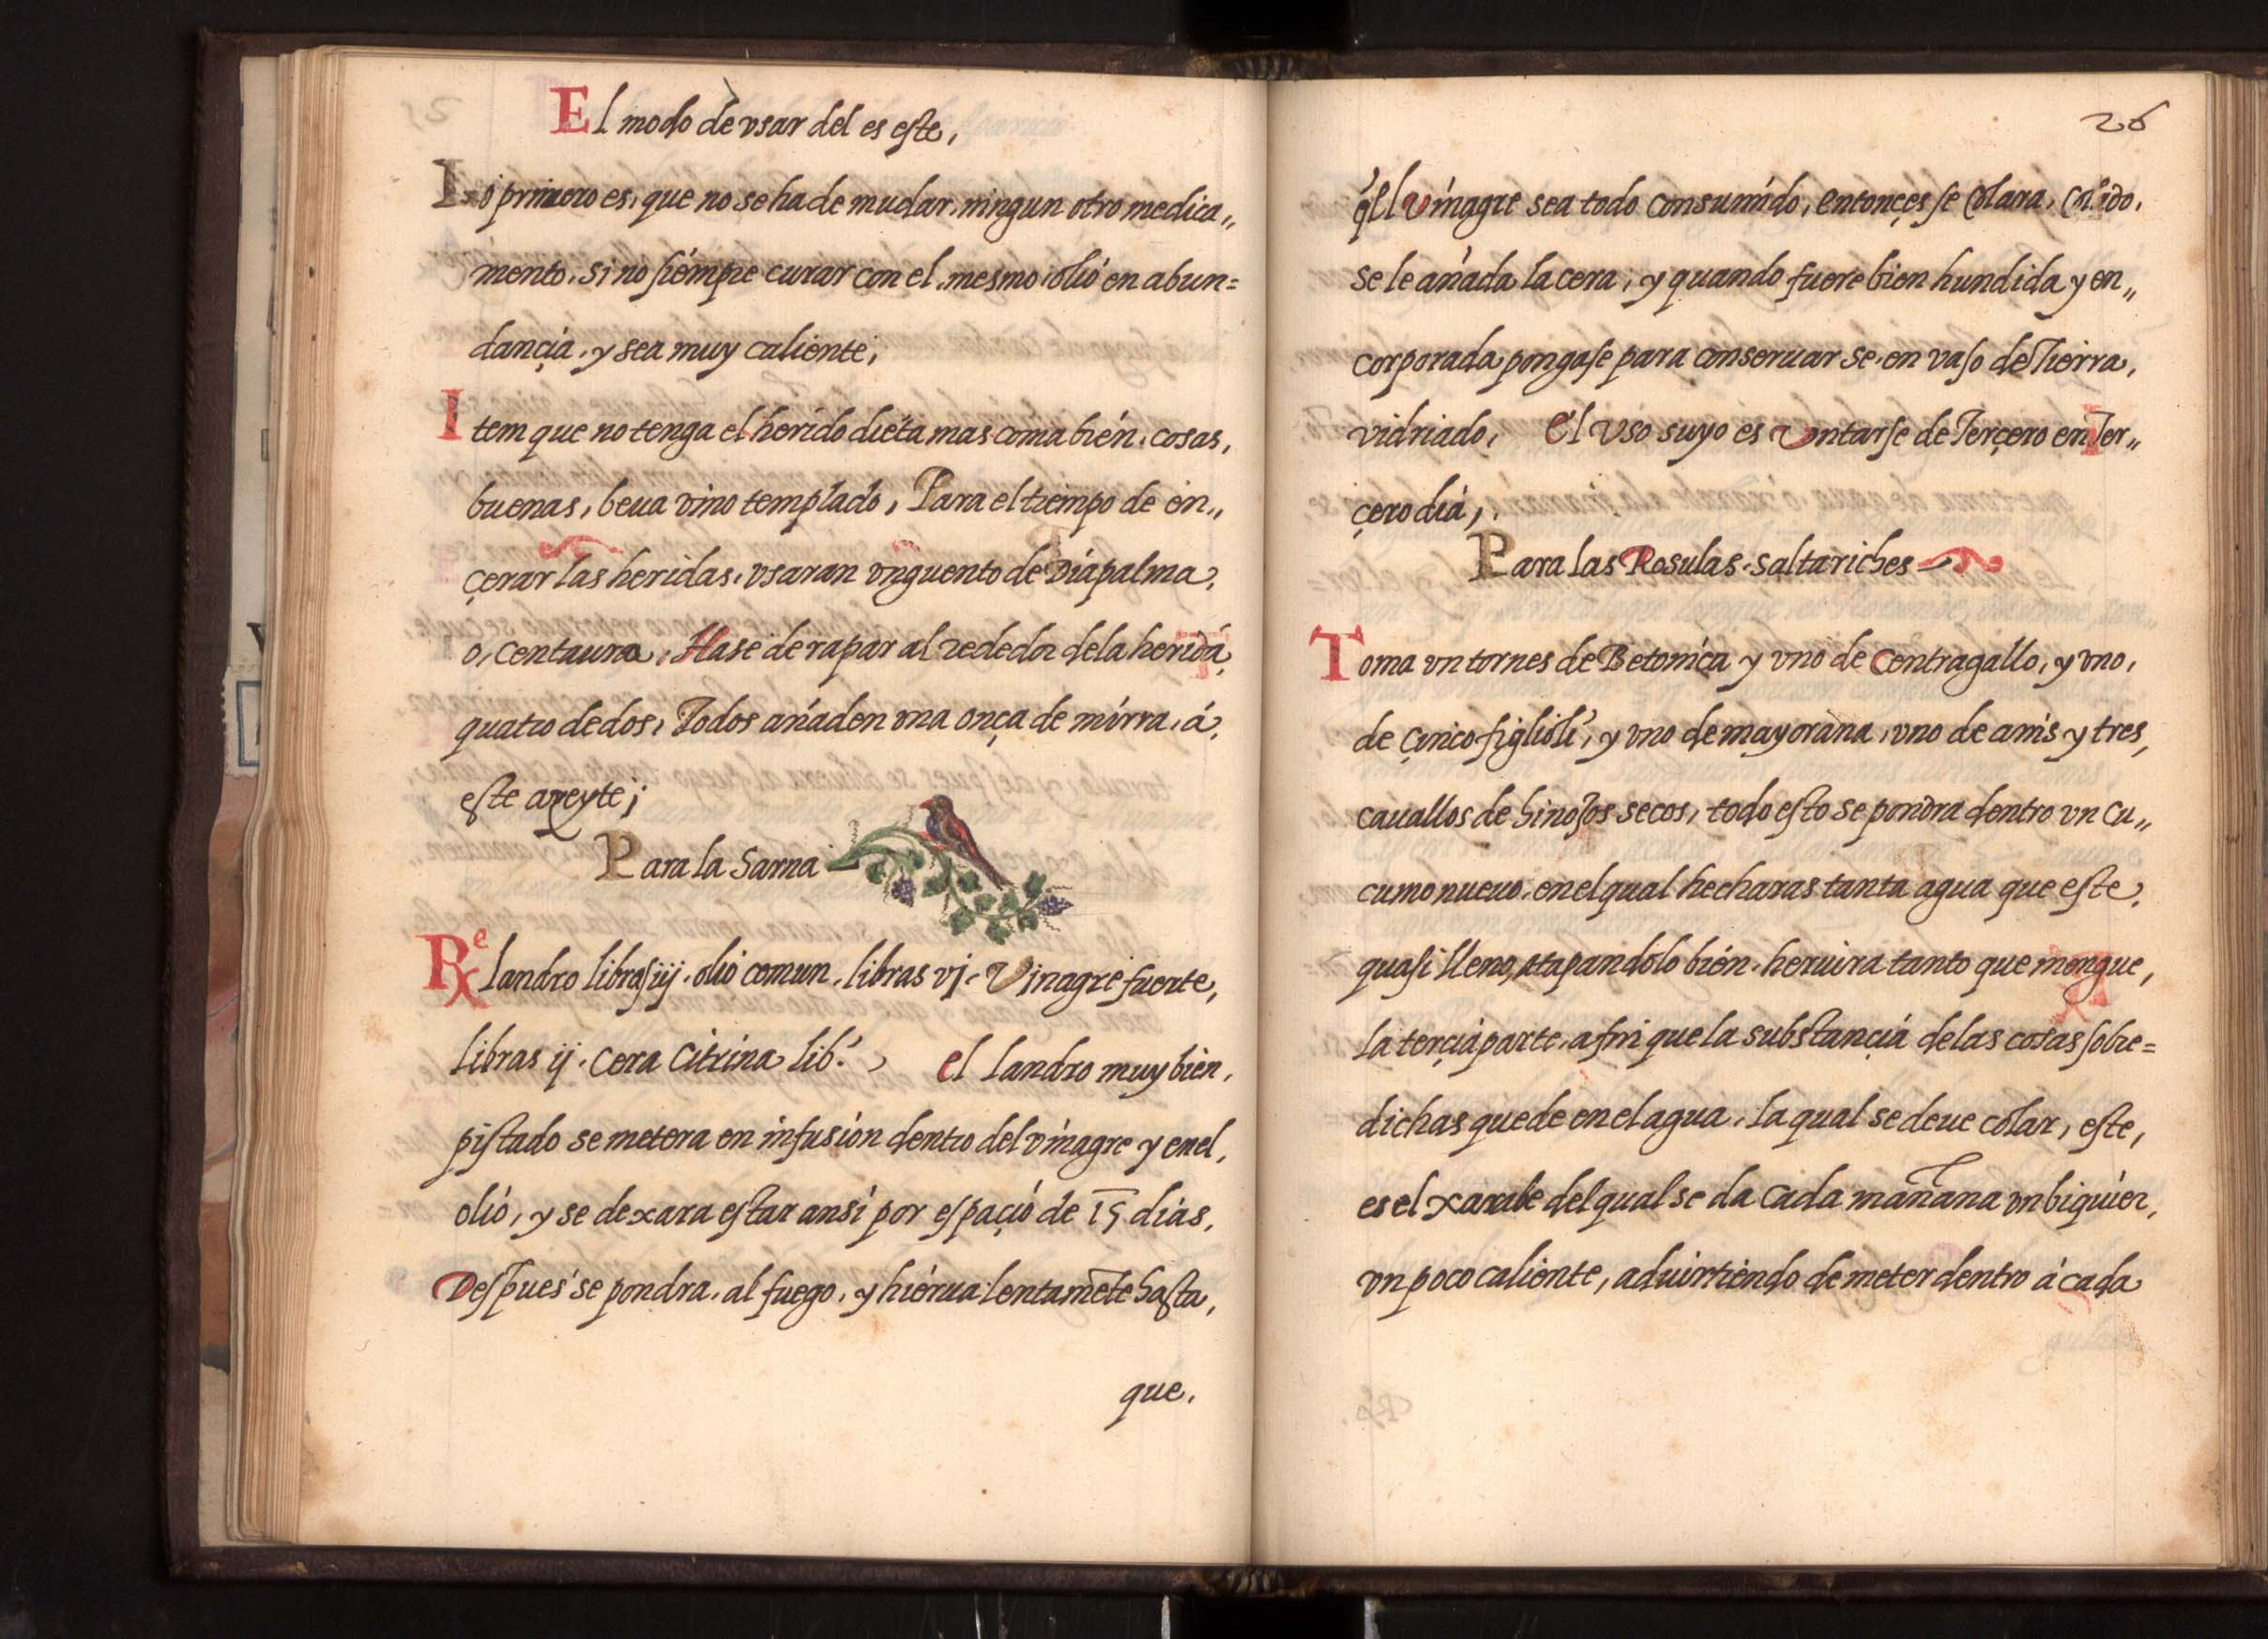 El modo de vsar del es este,
Lo primero es, que no se ha de mudar ningun otro medica„
mento, si no siémpre curar con el mesmo olió en abun=
dançiá, y sea muy caliente,
Item que no tenga el herido diéta mas coma bién, cosas,
buenas, beua vino templado, Para el tiempo de en„
çerar las heridas, vsaran vnguento de Diápalma,
o, centaura, Hase de rapar al rededor dela herida
quatro dedos, Todos añaden vna onça de mirra, á,
este azeyte;
Para la Sarna
Re landro libras iij. olió comun. libras vj. Vinagre fuerte,
libras ij. Cera Citrina lib. el landro muy bien,
pistado se metera en infusión dentro del vinagre y en el,
olió, y se dexara estar ansi por espaçió de 15 diás,
Despues se pondra, al fuego, y hiérua lentamēte hasta,
que.
26
q̃l vinagre sea todo consumido, entonçes se Colara, Calido,
se le añada la cera, y quando fuere bien hundida y en„
corporada pongase para conseruar se en vaso de Tierra,
vidriado, el vso suyo es vntarse de Terçero en Ter„
çero diá,
Para las Rosulas saltariches
Toma vn tornes de Betonica y vno de Centragallo, y vno,
de çinco figlioli, y vno de mayorana, vno de anis y tres,
cauallos de hinojos secos, todo esto se pondra dentro vn cu„
cumo nueuo, en el qual hecharas tanta agua que este,
quasi lleno, atapandolo bién, heruira tanto que mengue,
la terçiá parte, a fin que la substançiá delas cosas sobre=
dichas quede en el agua, la qual se deue colar, este,
es el xarabe del qual se da cada mañana vn biquier,
vn poco caliente, aduirtiendo de meter dentro á cada